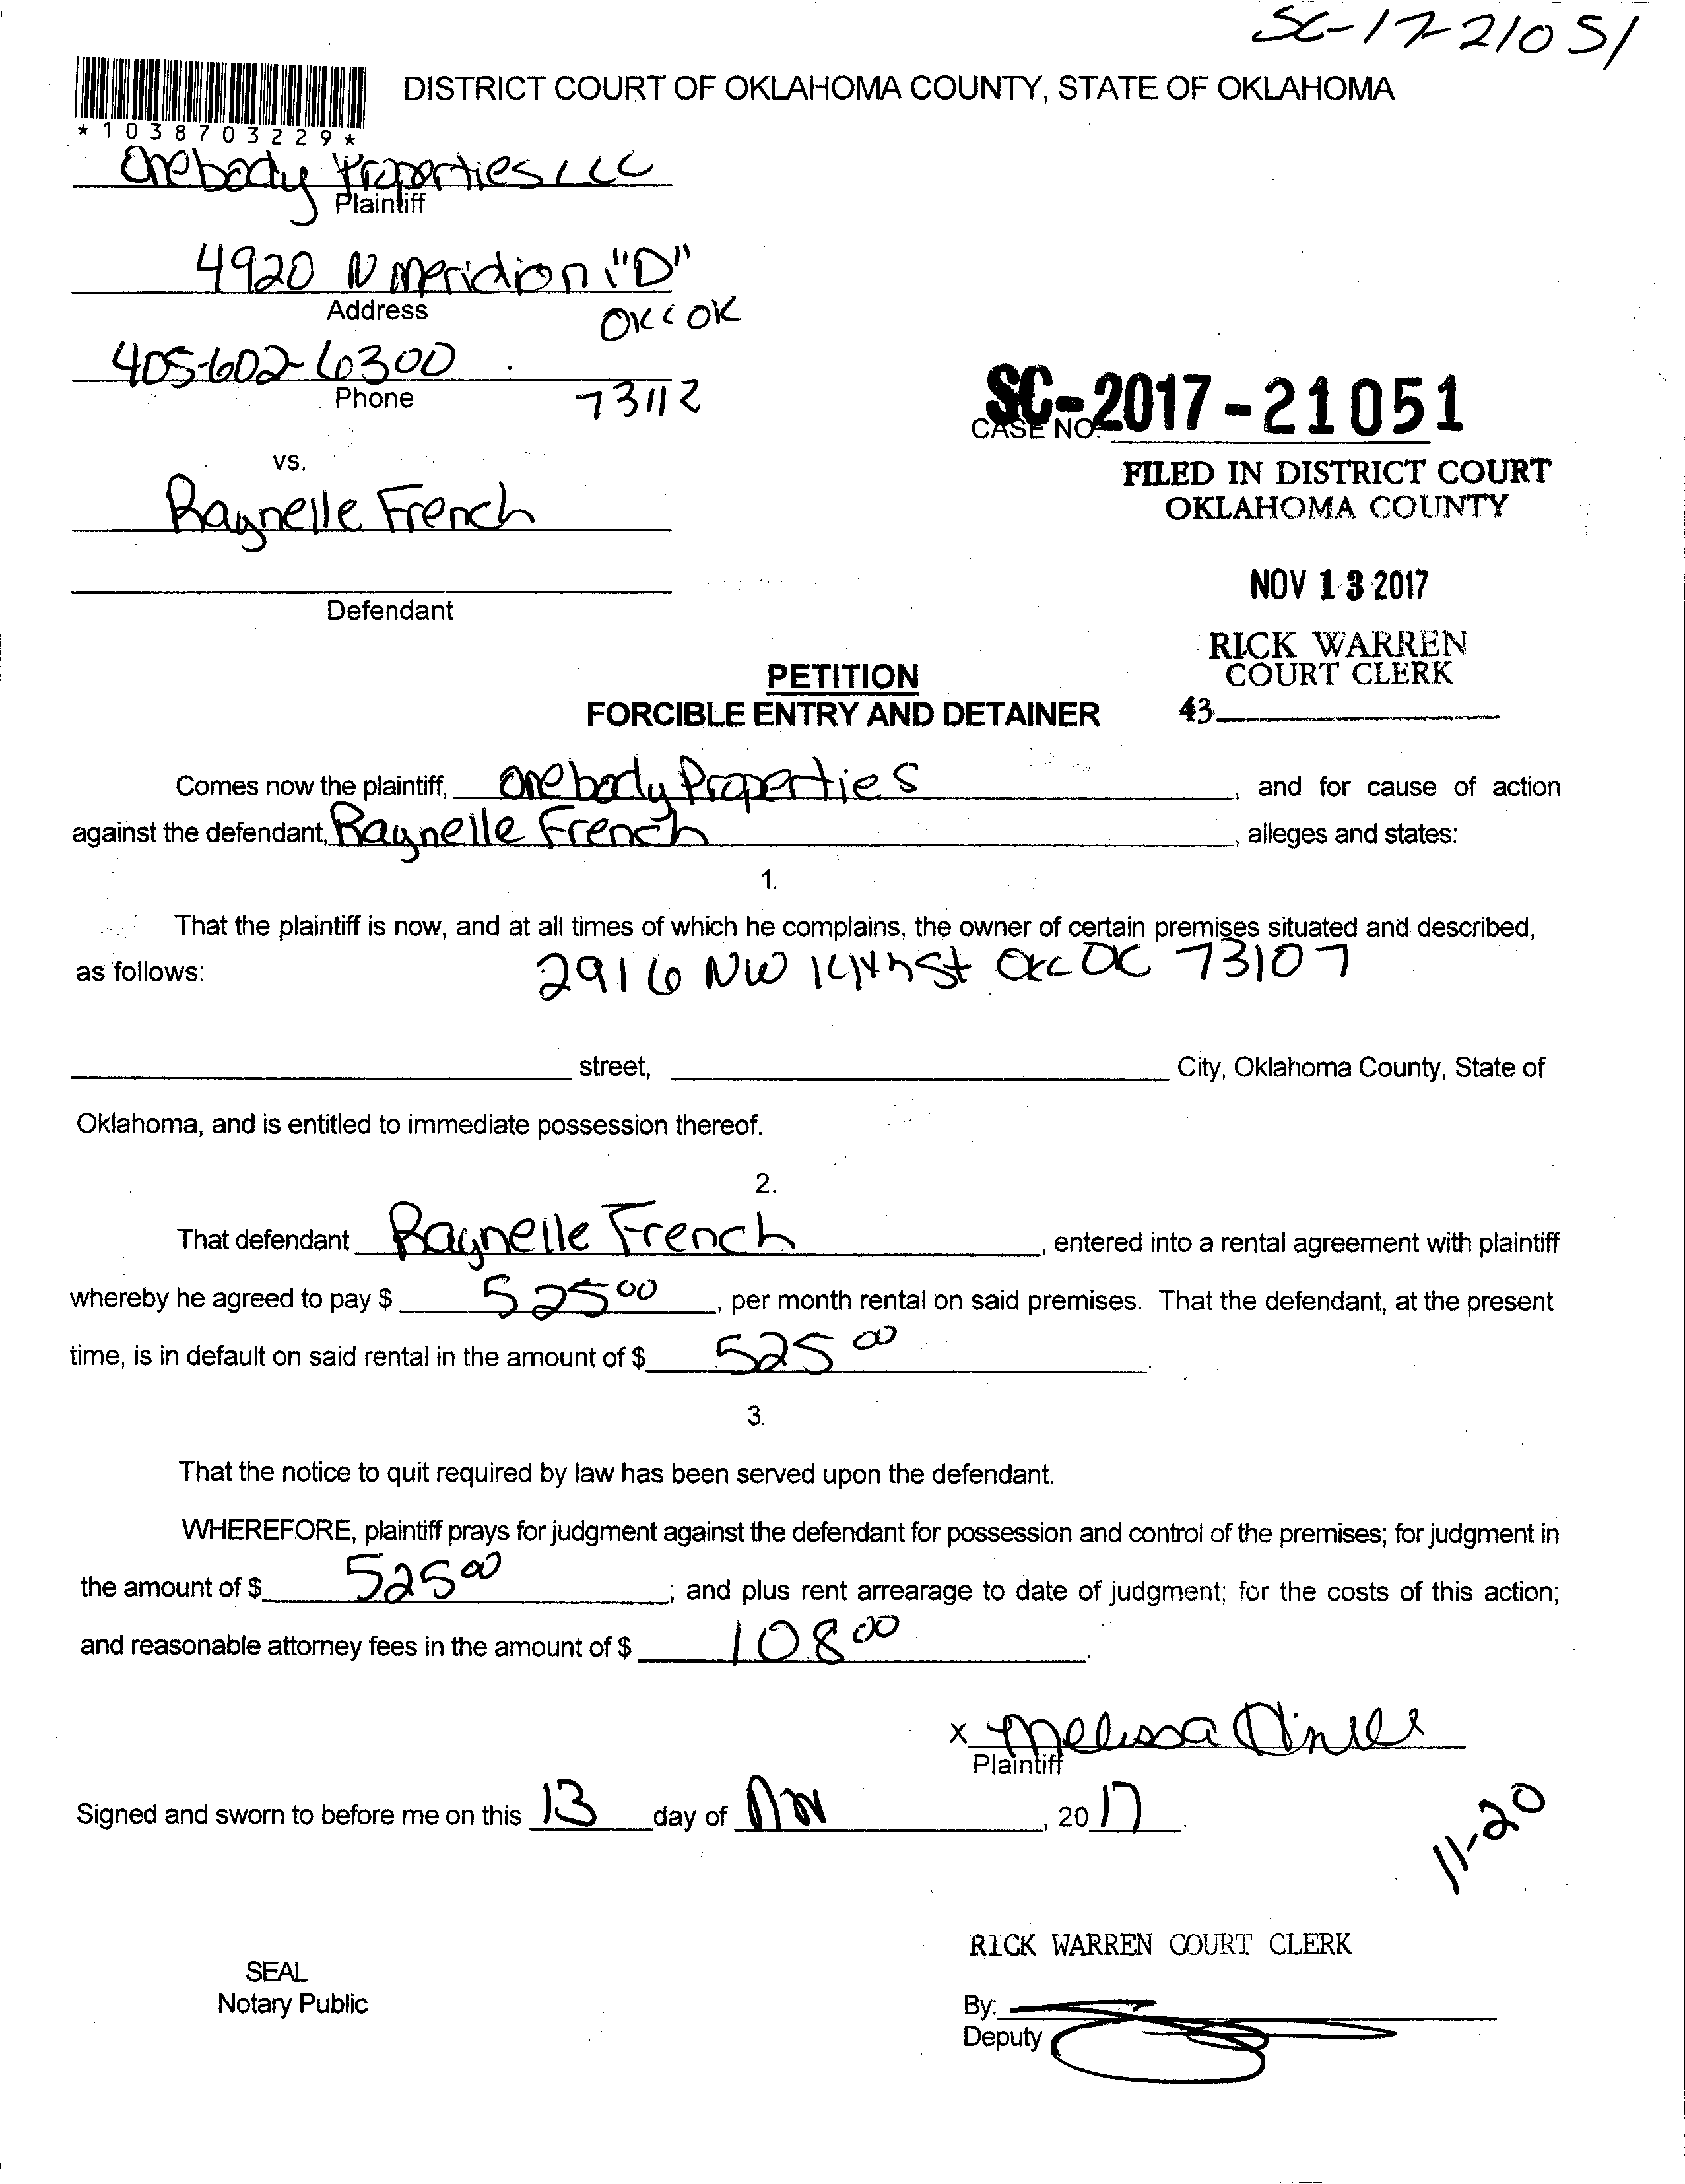 SC-17-21051
DISTRICT COURT OF OKLAHOMA COUNTY, STATE OF OKLAHOMA
*1038703229*
Onebody Properties LLC
Plaintiff
4920 N Meridian "D"
Address
OKC OK
405-602-6300
Phone
73112
SC-2017-21051
CASE NO.
vs.
FILED IN DISTRICT COURT
OKLAHOMA COUNTY
Raynelle French
NOV 13 2017
Defendant
RICK WARREN
COURT CLERK
43
PETITION
FORCIBLE ENTRY AND DETAINER
Comes now the plaintiff, Onebody Properties, and for cause of action
against the defendant, Raynelle French, alleges and states:
1.
That the plaintiff is now, and at all times of which he complains, the owner of certain premises situated and described,
as follows: 2916 NW 14th St OKC OK 73107
street, City, Oklahoma County, State of
Oklahoma, and is entitled to immediate possession thereof.
2.
That defendant Raynelle French, entered into a rental agreement with plaintiff
whereby he agreed to pay $ 525 00, per month rental on said premises. That the defendant, at the present
time, is in default on said rental in the amount of $ 525 00.
3.
That the notice to quit required by law has been served upon the defendant.
WHEREFORE, plaintiff prays for judgment against the defendant for possession and control of the premises; for judgment in
the amount of $ 525 00; and plus rent arrearage to date of judgment; for the costs of this action;
and reasonable attorney fees in the amount of $ 108 00.
x Melissa
Plaintiff
Signed and sworn to before me on this 13 day of Nov, 20 17.
11-20
RICK WARREN COURT CLERK
SEAL
Notary Public
By:
Deputy